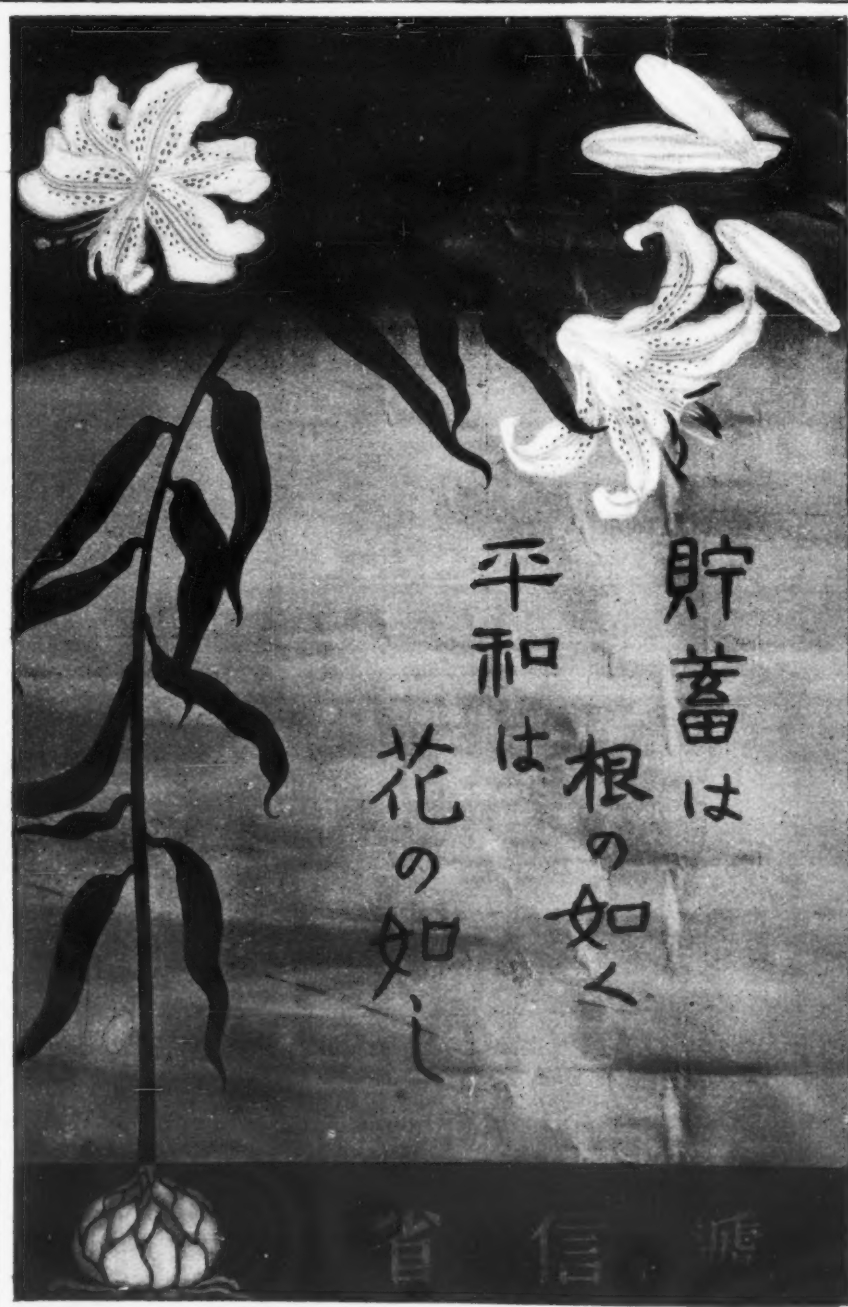 貯蓄は
根の如く
平和は
花の如し
逓信省